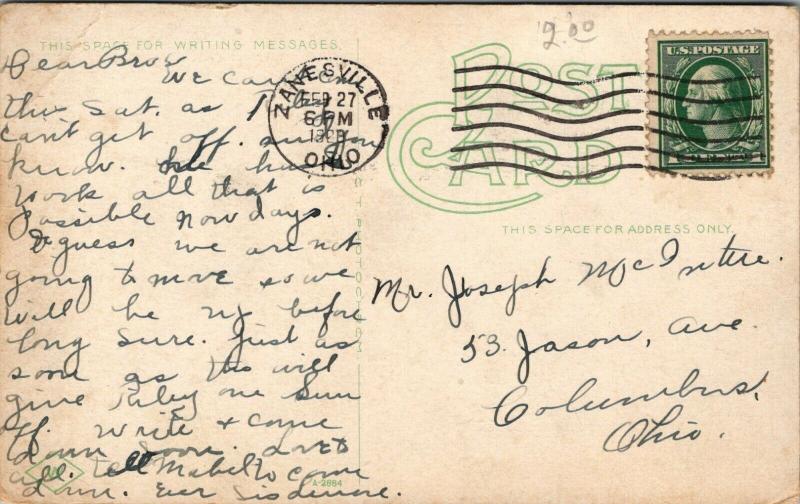 2.00
THIS SPACE FOR WRITING MESSAGES.
Dear Bro
We can
this Sat. as Riley
can't get off.
know. he has
work all that is
Possible now days.
I guess we are not
going to move so we
will be up before
long sure. Just as
soon as they will
give Riley one Sun
off. Write & come
down soon. Love to
all. tell Mabel to come
down. Ever Sis
A-2884
ZANESVILLE
FEB 27
6 PM
OHIO
POST CARD
U.S. POSTAGE
THIS SPACE FOR ADDRESS ONLY.
Mr. Joseph McIntire.
53. Jason, Ave.
Columbus,
Ohio.